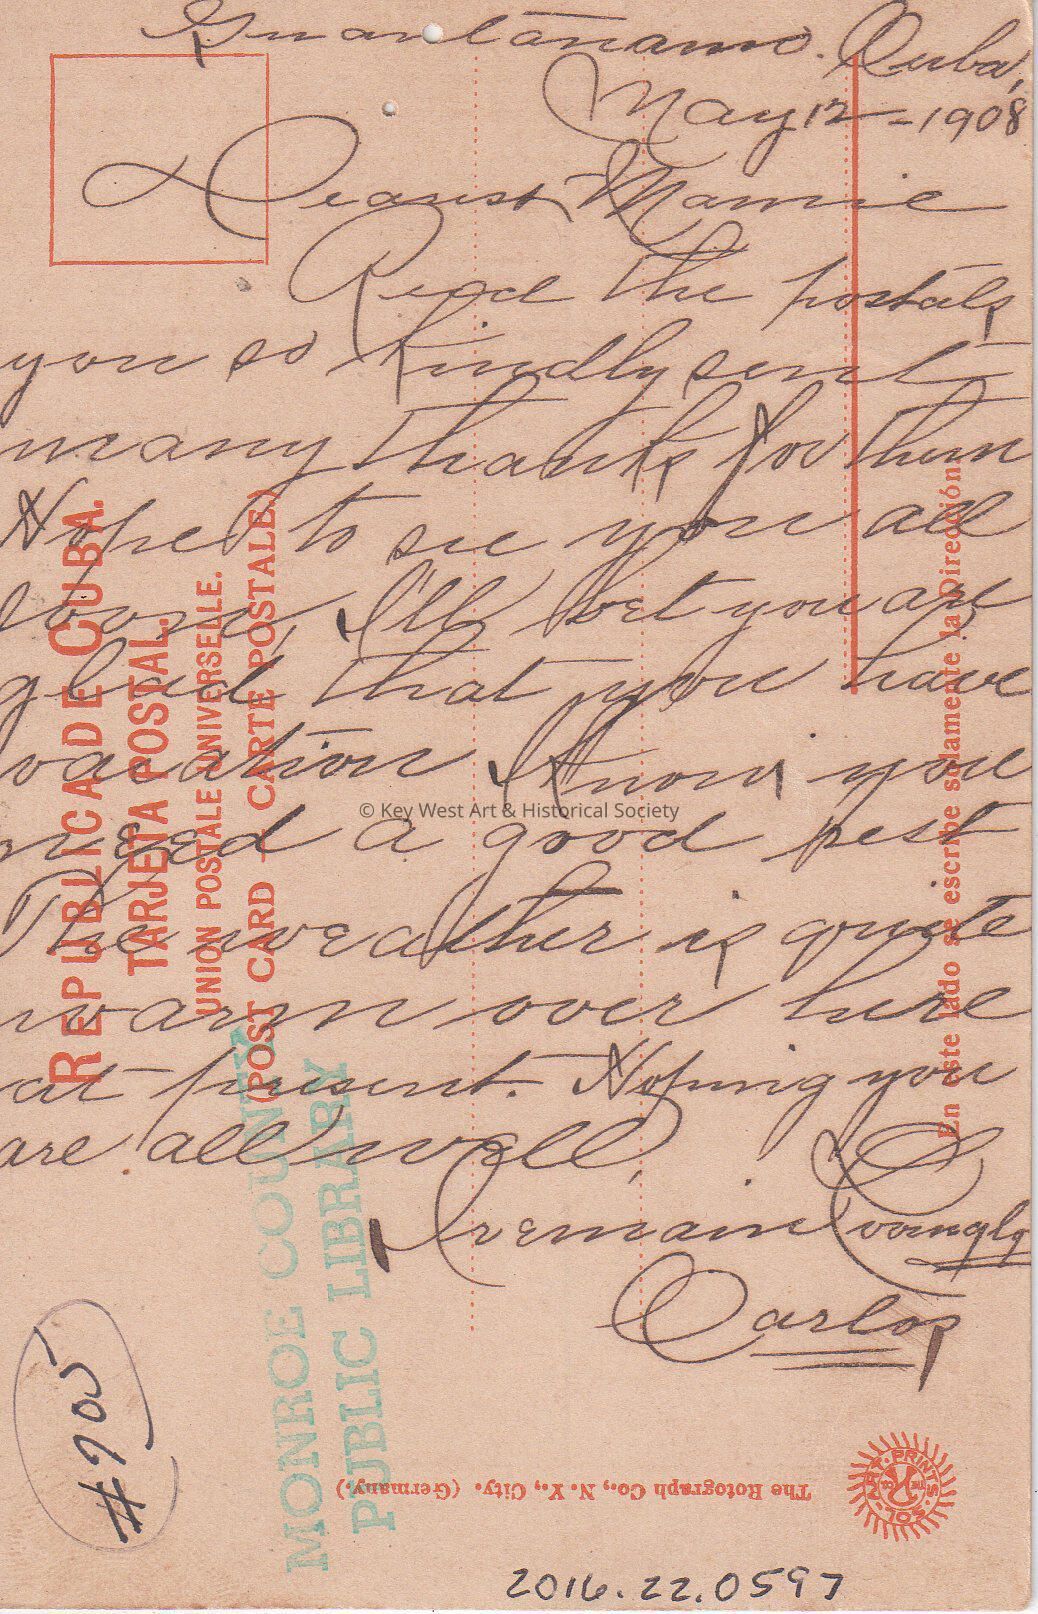 Guantánamo. Cuba,
May 12 - 1908
Dearest Mamie
Recd the postals,
you so kindly sent
many thanks, for them
Hope to see you all
soon, I'll bet you are
glad that you have
vacation I know you
need a good rest
The weather is quite
warm over here
at present. Hoping you
are all well,
I remain Lovingly
Carlos
REPUBLICA DE CUBA.
TARJETA POSTAL.
UNION POSTALE UNIVERSELLE.
(POST CARD — CARTE POSTALE.)
En este lado se escribe solamente la Dirección.
MONROE COUNTY
PUBLIC LIBRARY
© Key West Art & Historical Society
#905
The Rotograph Co., N. Y., City. (Germany.)
SOL-ART-PRINTS
2016.22.0597